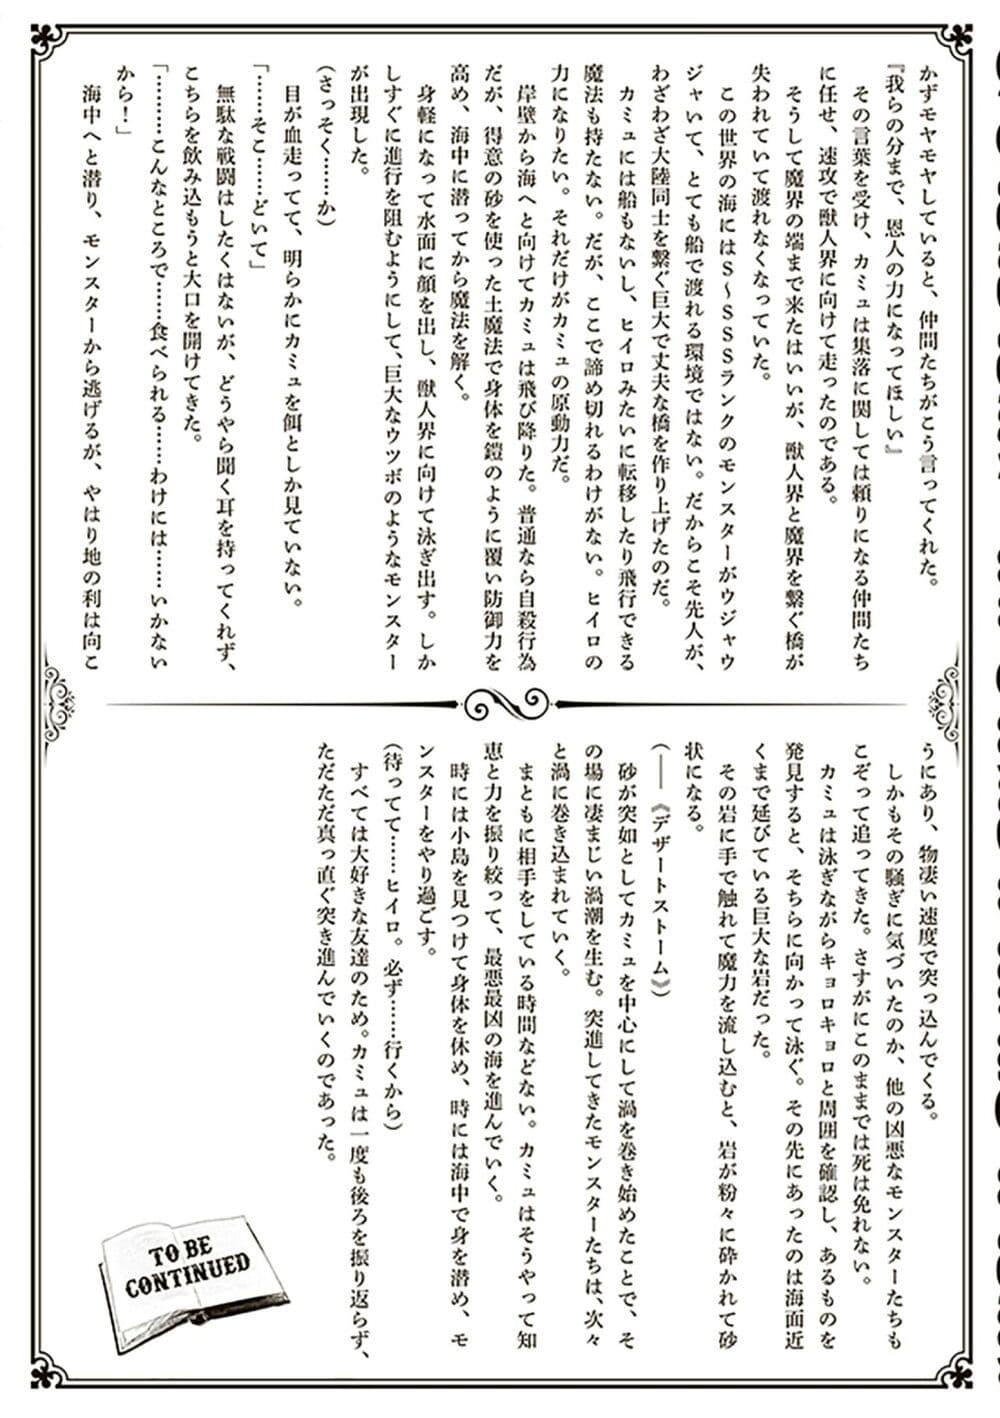 かずモヤモヤしていると、仲間たちがこう言ってくれた。
『我らの分まで、恩人の力になってほしい』
その言葉を受け、カミュは集落に関しては頼りになる仲間たち
に任せ、速攻で獣人界に向けて走ったのである。
そうして魔界の端まで来たはいいが、獣人界と魔界を繋ぐ橋が
失われていて渡れなくなっていた。
この世界の海にはS～SSSランクのモンスターがウジャウ
ジャいて、とても船で渡れる環境ではない。だからこそ先人が、
わざわざ大陸同士を繋ぐ巨大で丈夫な橋を作り上げたのだ。
カミュには船もないし、ヒイロみたいに転移したり飛行できる
魔法も持たない。だが、ここで諦め切れるわけがない。ヒイロの
力になりたい。それだけがカミュの原動力だ。
岸壁から海へと向けてカミュは飛び降りた。普通なら自殺行為
だが、得意の砂を使った土魔法で身体を鎧のように覆い防御力を
高め、海中に潜ってから魔法を解く。
身軽になって水面に顔を出し、獣人界に向けて泳ぎ出す。しか
しすぐに進行を阻むようにして、巨大なウツボのようなモンスター
が出現した。
（さっそく……か）
目が血走ってて、明らかにカミュを餌としか見ていない。
「……そこ……どいて」
無駄な戦闘はしたくはないが、どうやら聞く耳を持ってくれず、
こちらを飲み込もうと大口を開けてきた。
「………こんなところで……食べられる……わけには……いかない
から！」
海中へと潜り、モンスターから逃げるが、やはり地の利は向こ
うにあり、物凄い速度で突っ込んでくる。
しかもその騒ぎに気づいたのか、他の凶悪なモンスターたちも
こぞって追ってきた。さすがにこのままでは死は免れない。
カミュは泳ぎながらキョロキョロと周囲を確認し、あるものを
発見すると、そちらに向かって泳ぐ。その先にあったのは海面近
くまで延びている巨大な岩だった。
その岩に手で触れて魔力を流し込むと、岩が粉々に砕かれて砂
状になる。
（――《デザートストーム》）
砂が突如としてカミュを中心にして渦を巻き始めたことで、そ
の場に凄まじい渦潮を生む。突進してきたモンスターたちは、次々
と渦に巻き込まれていく。
まともに相手をしている時間などない。カミュはそうやって知
恵と力を振り絞って、最悪最凶の海を進んでいく。
時には小島を見つけて身体を休め、時には海中で身を潜め、モ
ンスターをやり過ごす。
（待ってて……ヒイロ。必ず……行くから）
すべては大好きな友達のため。カミュは一度も後ろを振り返らず、
ただただ真っ直ぐ突き進んでいくのであった。
TO BE
CONTINUED